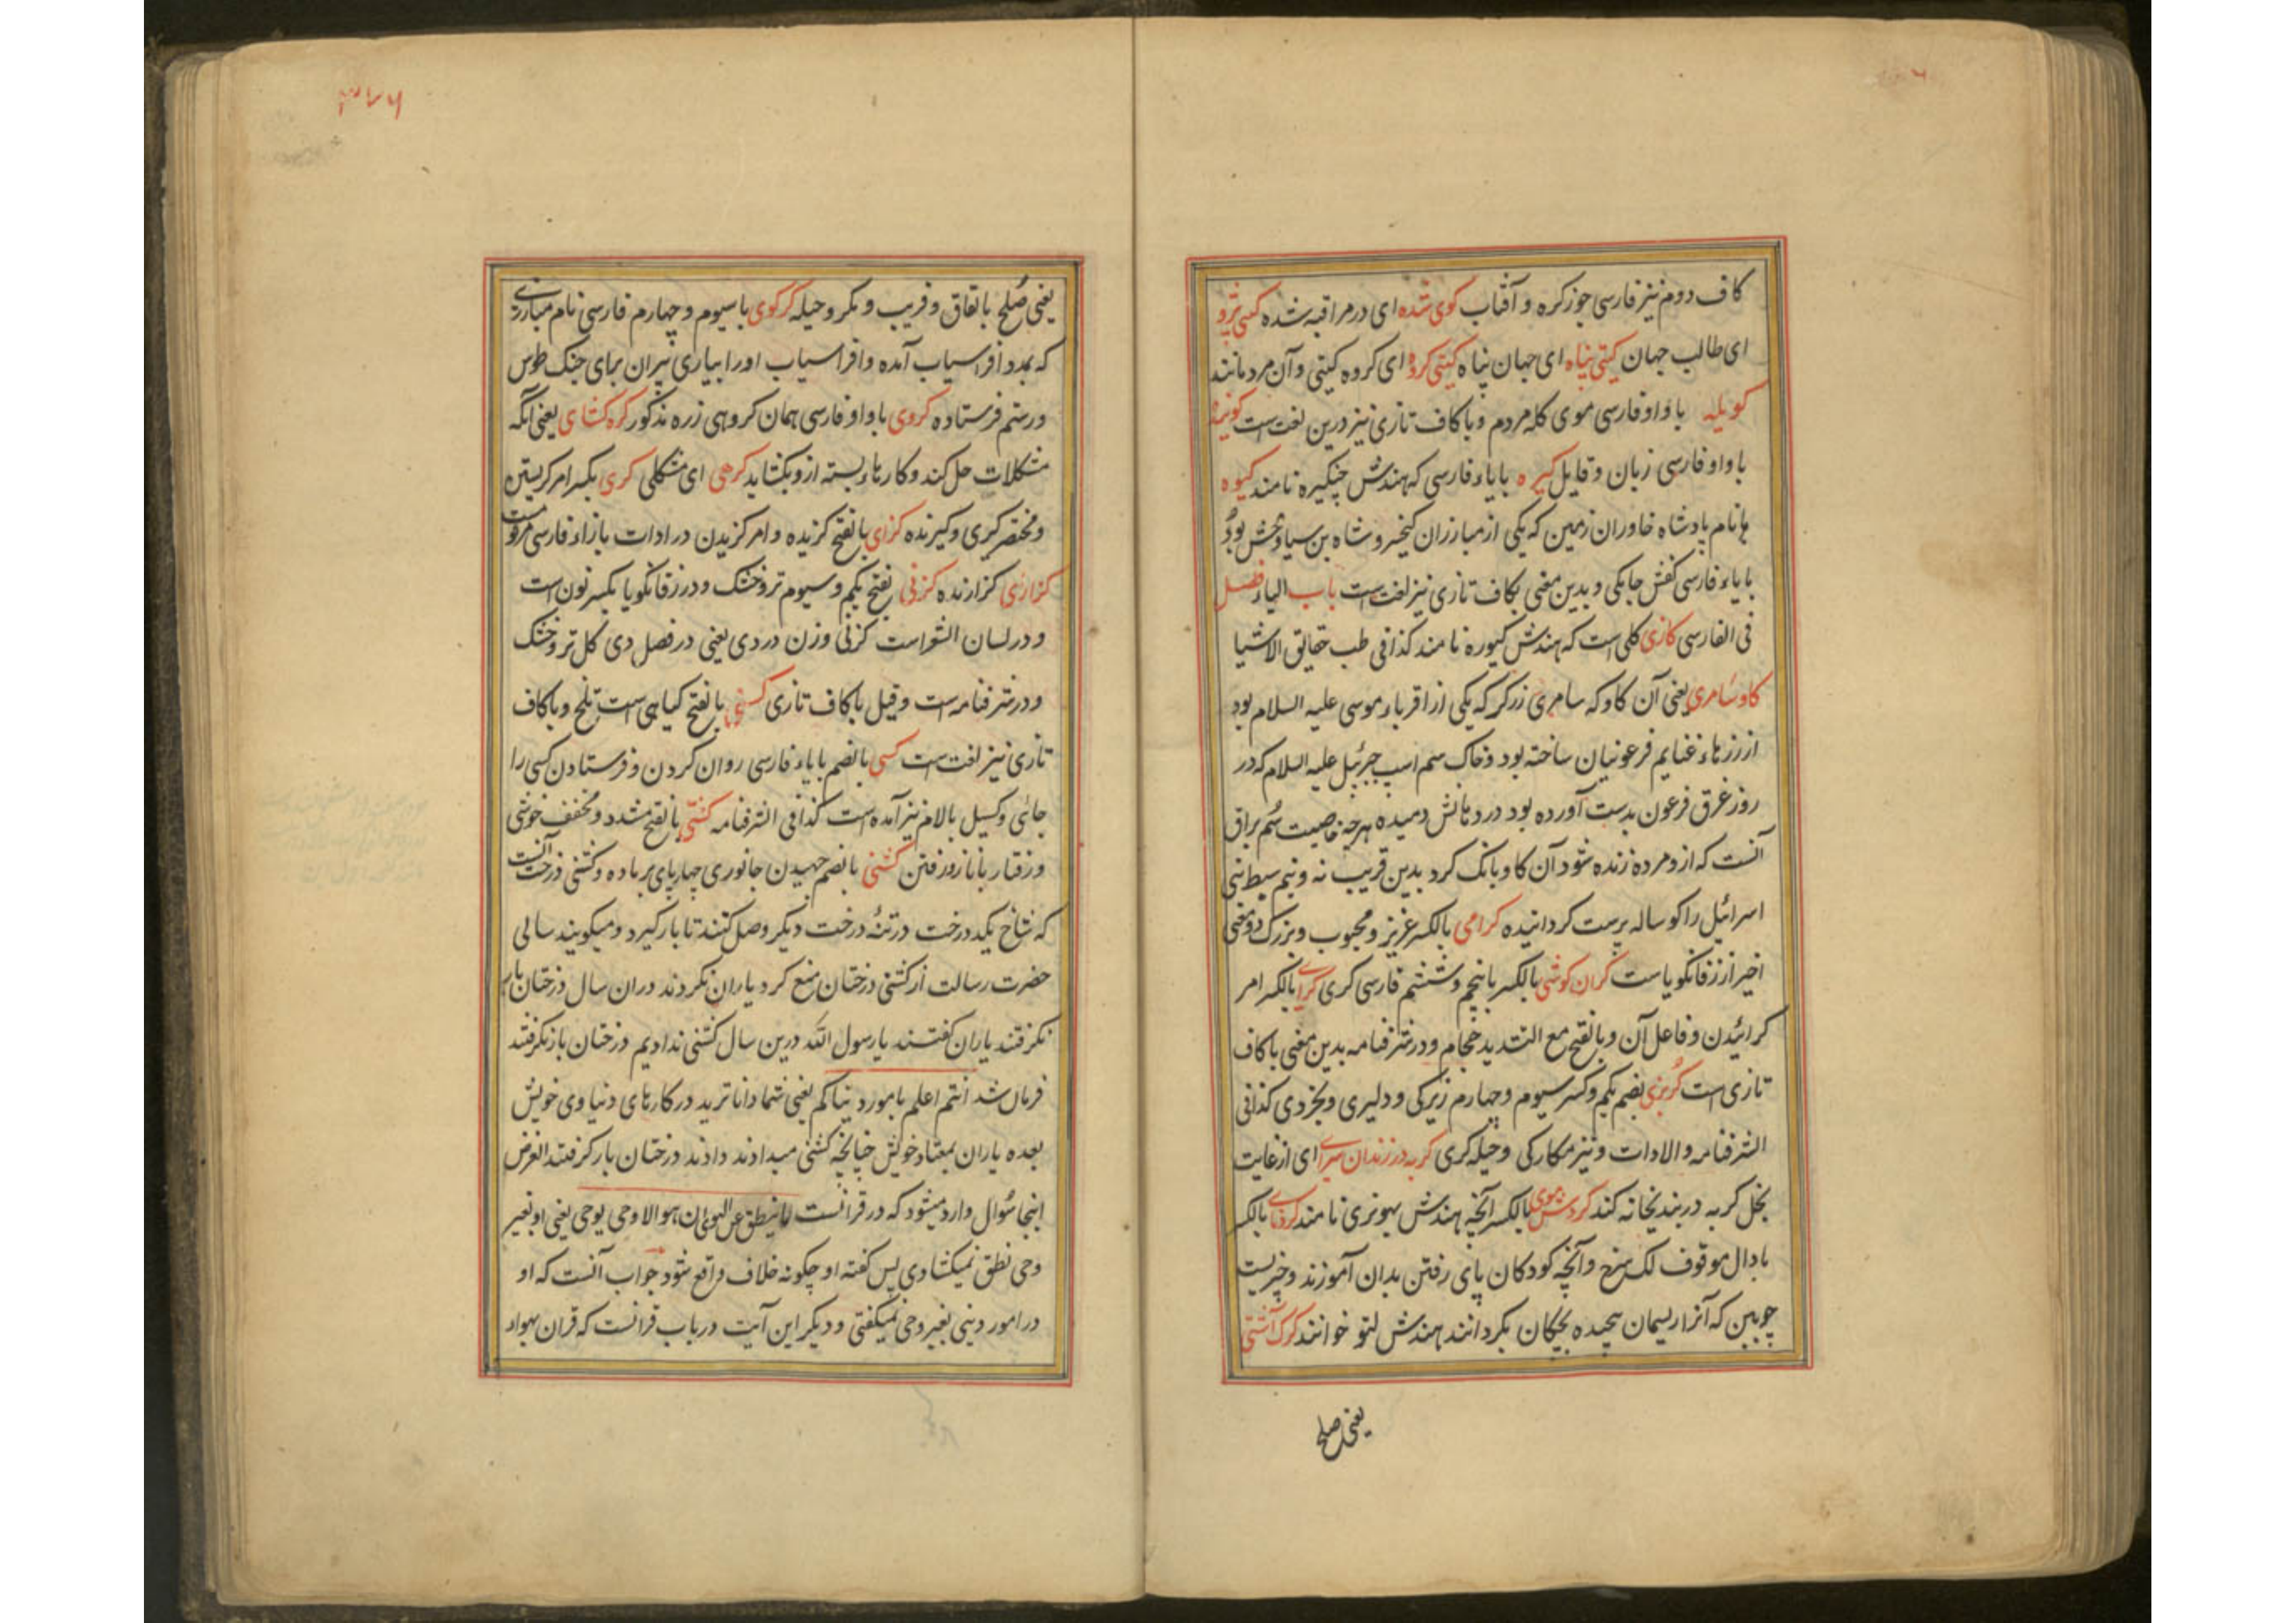 کاف دوم نیز فارسی جوز کره و آفتاب کوی شده ای در مراقبه شده کیتی پژو
ای طالب جهان کیتی پناه ای جهان پناه کیتی کرو ای کروه کیتی و آن مردمانند
کویله با واو فارسی موی کله مردم و با کاف تازی نیز درین لغت است
با واو فارسی زبان و قایل کیره با یاء فارسی که هندش چنکیره نامند کیوه
نام پادشاه خاوران زمین که یکی از مبارزان کیخسرو شاه بن سیاوخش بود
با یاء فارسی کفش جامکی و بدین معنی بکاف تازی نیز لغت است باب الیاء فصل
فی الفارسی کازی کلی است که هندش کیوره نامند کذا فی طب حقایق الاشیا
کاو سامری یعنی آن کاو که سامری زرکر که یکی از اقرباء موسی علیه السلام بود
از زرهاء غنایم فرعونیان ساخته بود و خاک سم اسپ جبرئیل علیه السلام که در
روز غرق فرعون بدست آورده بود در دهانش دمیده هرچه خاصیت سم براق
آنست که ازو مرده زنده شود آن کاو بانک کرد بدین فریب نه و نیم سبط بنی
اسرائیل را کوساله پرست کردانیده کرامی بالکسر عزیز و محبوب و بزرک دو معنی
اخیر از زفانکویاست کران کوشی بالکسر با پنجم و ششم فارسی کری کرای بالکسر امر
کرائیدن و فاعل آن و بالفتح مع التشدید حجام و در شرفنامه بدین معنی با کاف
تازی است کربزی بضم یکم و کسر سیوم و چهارم زیرکی و دلیری و بخردی کذا فی
الشرفنامه والادات و نیز مکارکی و حیله کری کربه در زندان سرای ای از غایت
بخل کربه در بندیخانه کند کردش موی بالکسر آنچه هندش بهونری نامند کردنای بالکسر
با دال موقوف لک سرخ و آنچه کودکان پای رفتن بدان آموزند و چیزیست
چوبین که آنرا ریسمان پیچیده بچکان بکردانند هندش لتو خوانند کرک آشتی
یعنی صلح
۳۷۶
یعنی صلح باتفاق و فریب و مکر و حیله کرکوی با سیوم و چهارم فارسی نام مبارزی
که بمدد افراسیاب آمده و افراسیاب او را بیاری پیران برای جنک طوس
و رستم فرستاده کروی با واو فارسی همان کروهی زره مذکور کره کشای یعنی آنکه
مشکلات حل کند و کارهاء بسته ازو بکشاید کرهی ای مشکلی کری بکسر امر کریستن
و مختصر کیری و کیرنده کزای بالفتح کزنده و امر کزیدن در ادات بازاء فارسی مرقومست
کزاری کزارنده کزنی بفتح یکم و سیوم تر و خشک و در زفانکویا بکسر نون است
و در لسان الشعراست کزنی وزن دردی یعنی در فصل دی کل تر و خشک
و در شرفنامه است و قیل با کاف تازی بالفتح کیاهی است تلخ و با کاف
تازی نیز لغت است کسی بالضم با یاء فارسی روان کردن و فرستادن کسی را
جائی و کسیل بالام نیز آمده است کذا فی الشرفنامه کشی بالفتح مشدد و مخفف خوشی
و رفتار با ناز و رفتن کشنی بالضم جهیدن جانوری چهارپای بر ماده و کشنی درخت آنست
که شاخ یکدرخت در تنهٔ درخت دیکر وصل کنند تا بار کیرد و میکویند سالی
حضرت رسالت از کشنی درختان منع کرد یاران نکردند دران سال درختان بار
نکرفتند یاران کفتند یا رسول الله درین سال کشنی ندادیم درختان بار نکرفتند
فرمان شد انتم اعلم بامور دنیاکم یعنی شما داناترید در کارهای دنیاوی خویش
بعده یاران بمعتاد خویش چنانچه کشنی میدادند دادند درختان بار کرفتند الغرض
اینجا سؤال وارد میشود که در قرآنست ما ینطق عن الهوی ان هو الا وحی یوحی یعنی او بغیر
وحی نطق نمیکشاوی پس کفته او چکونه خلاف واقع شود جواب آنست که او
در امور دینی بغیر وحی نمیکفتی و دیکر این آیت در باب قرآنست که قرآن بهواء